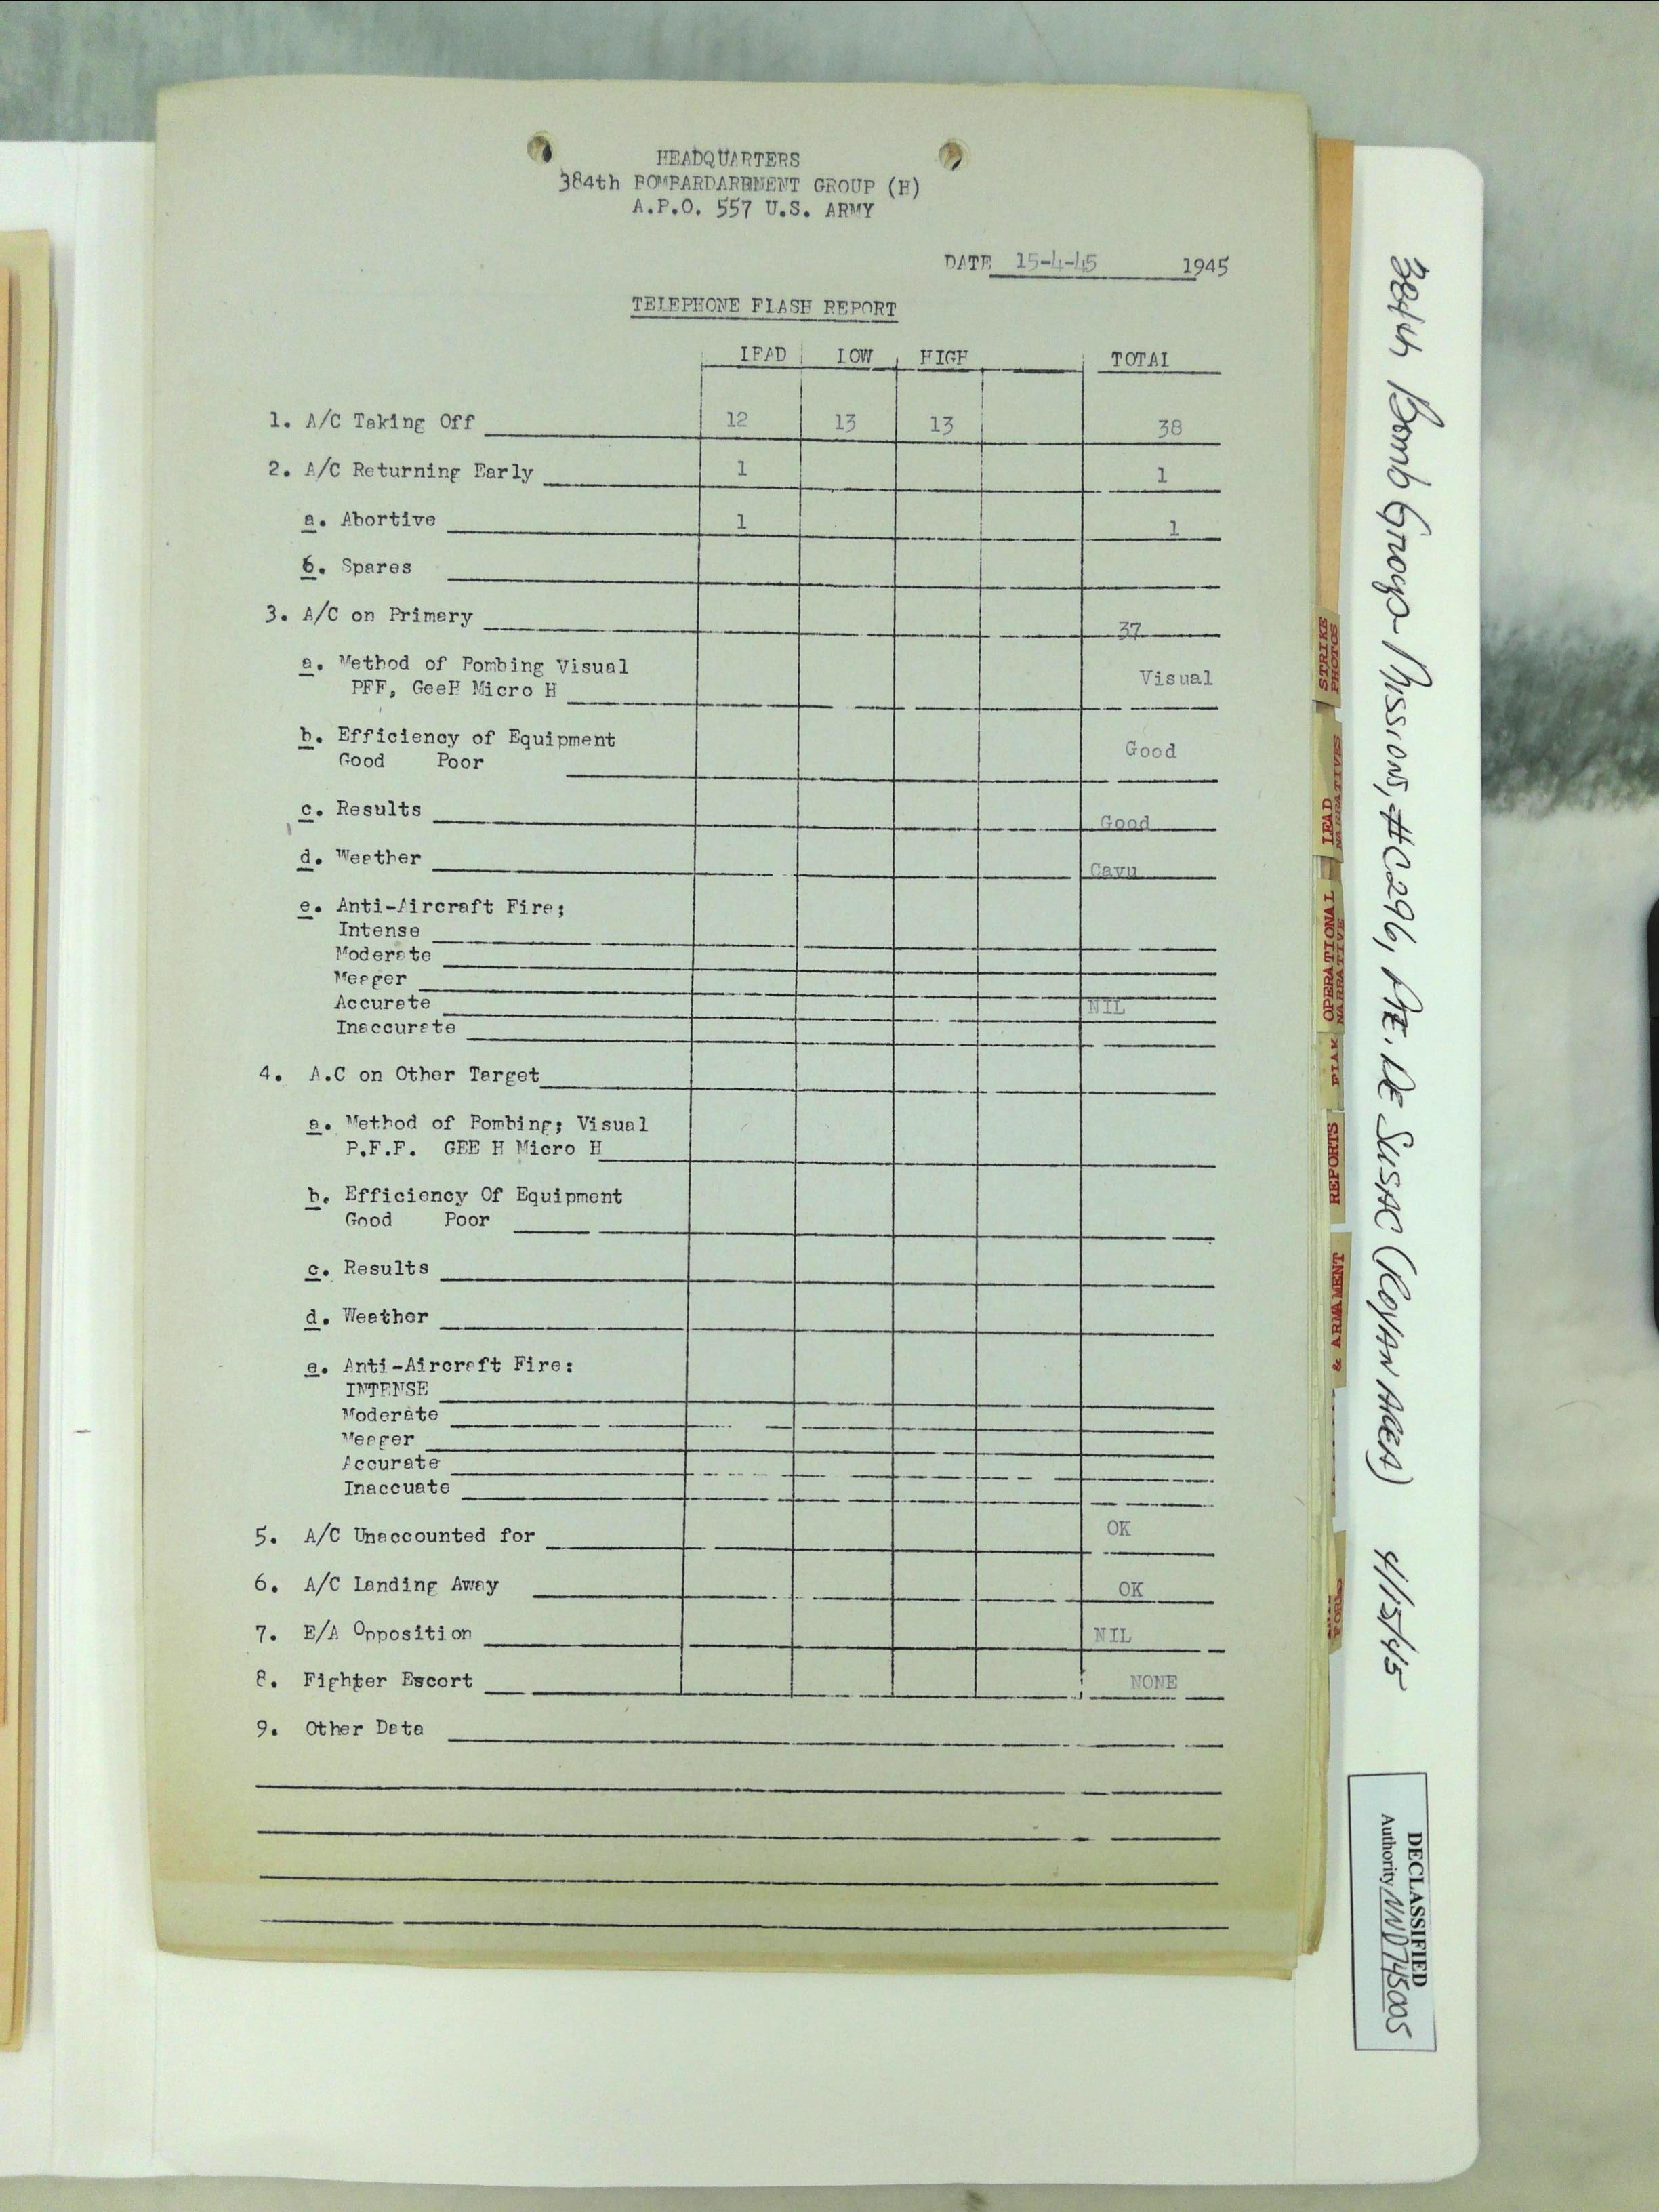 HEADQUARTERS
384th BOMBARDARBMENT GROUP (H)
A.P.O. 557 U.S. ARMY
DATE 15-4-45 1945
TELEPHONE FLASH REPORT
LEAD LOW HIGH TOTAL
1. A/C Taking Off 12 13 13 38
2. A/C Returning Early 1 1
a. Abortive 1 1
b. Spares
3. A/C on Primary 37
a. Method of Bombing Visual
PFF, GeeH Micro H Visual
b. Efficiency of Equipment
Good Poor Good
c. Results Good
d. Weather Cavu
e. Anti-Aircraft Fire;
Intense
Moderate
Meager
Accurate NIL
Inaccurate
4. A.C on Other Target
a. Method of Bombing; Visual
P.F.F. GEE H Micro H
b. Efficiency Of Equipment
Good Poor
c. Results
d. Weather
e. Anti-Aircraft Fire:
INTENSE
Moderate
Meager
Accurate
Inaccuate
5. A/C Unaccounted for OK
6. A/C Landing Away OK
7. E/A Opposition NIL
8. Fighter Escort NONE
9. Other Data
STRIKE
PHOTOS
LEAD
NARRATIVES
OPERATIONAL
NARRATIVE
FLAK
REPORTS
& ARMAMENT
384th Bomb Group Missions, #C296, Pte. De Susac (Royan Area) 4/15/45
DECLASSIFIED
Authority NND745005